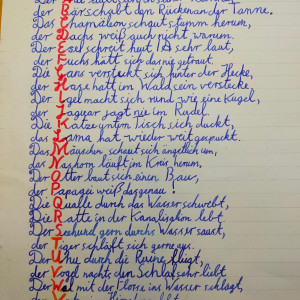 der Bär schabt den Rücken an der Tanne.
Das Chamäleon schgut stumm herum,
der Dachs weiß auch nicht warum.
Der Esel schreit heut IA sehr laut,
der Fuchs hatt sich das nie getraut.
Die Gans versteckt sich hinter der Hecke,
der Hase hatt im Wald sein verstecke.
Der Igel macht sich rund wie eine Kugel,
der Jaguar jagt nie im Rudel.
Die Katze untern Tisch sich duckt,
das Lama hat wieder weit gespuckt.
Das Mäuschen schaut sich ängstlich um,
das Nashorn läuft im Kreis herum,
Der Otter baut sich einen Bau,
der Papagei weiß das genau!
Die Qualle durch das Wasser schwebt,
Die Ratte in der Kanalisation lebt.
Der Seehund gern durchs Wasser saust,
der Tiger schläft sich gerne aus.
Der Uhu durch die Ruine fliegt,
der Vogel nachts den Schlaf sehr liebt
Der Wal mit der Flosse ins Wasser schlägt,